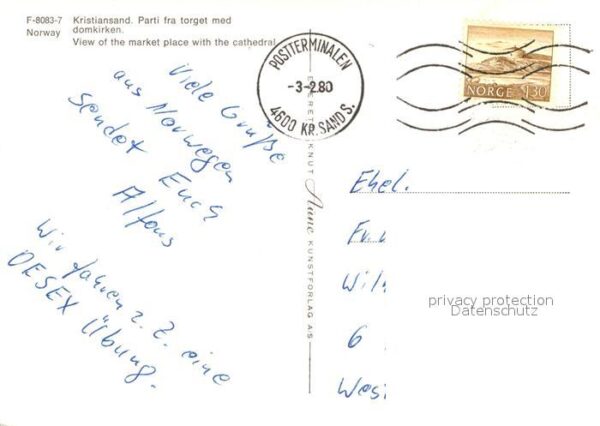 F-8083-7 Kristiansand. Parti fra torget med
Norway domkirken.
View of the market place with the cathedral
POSTTERMINALEN
-3-2.80
4600 KR.SAND S.
NORGE 130
Viele Grüße
aus Norwegen
sendet Euch
Alfons
Wir fahren z. Z. eine
DESEX Übung.
ENERETT: KNUT Aune KUNSTFORLAG A/S
Ehel.
6
privacy protection
Datenschutz